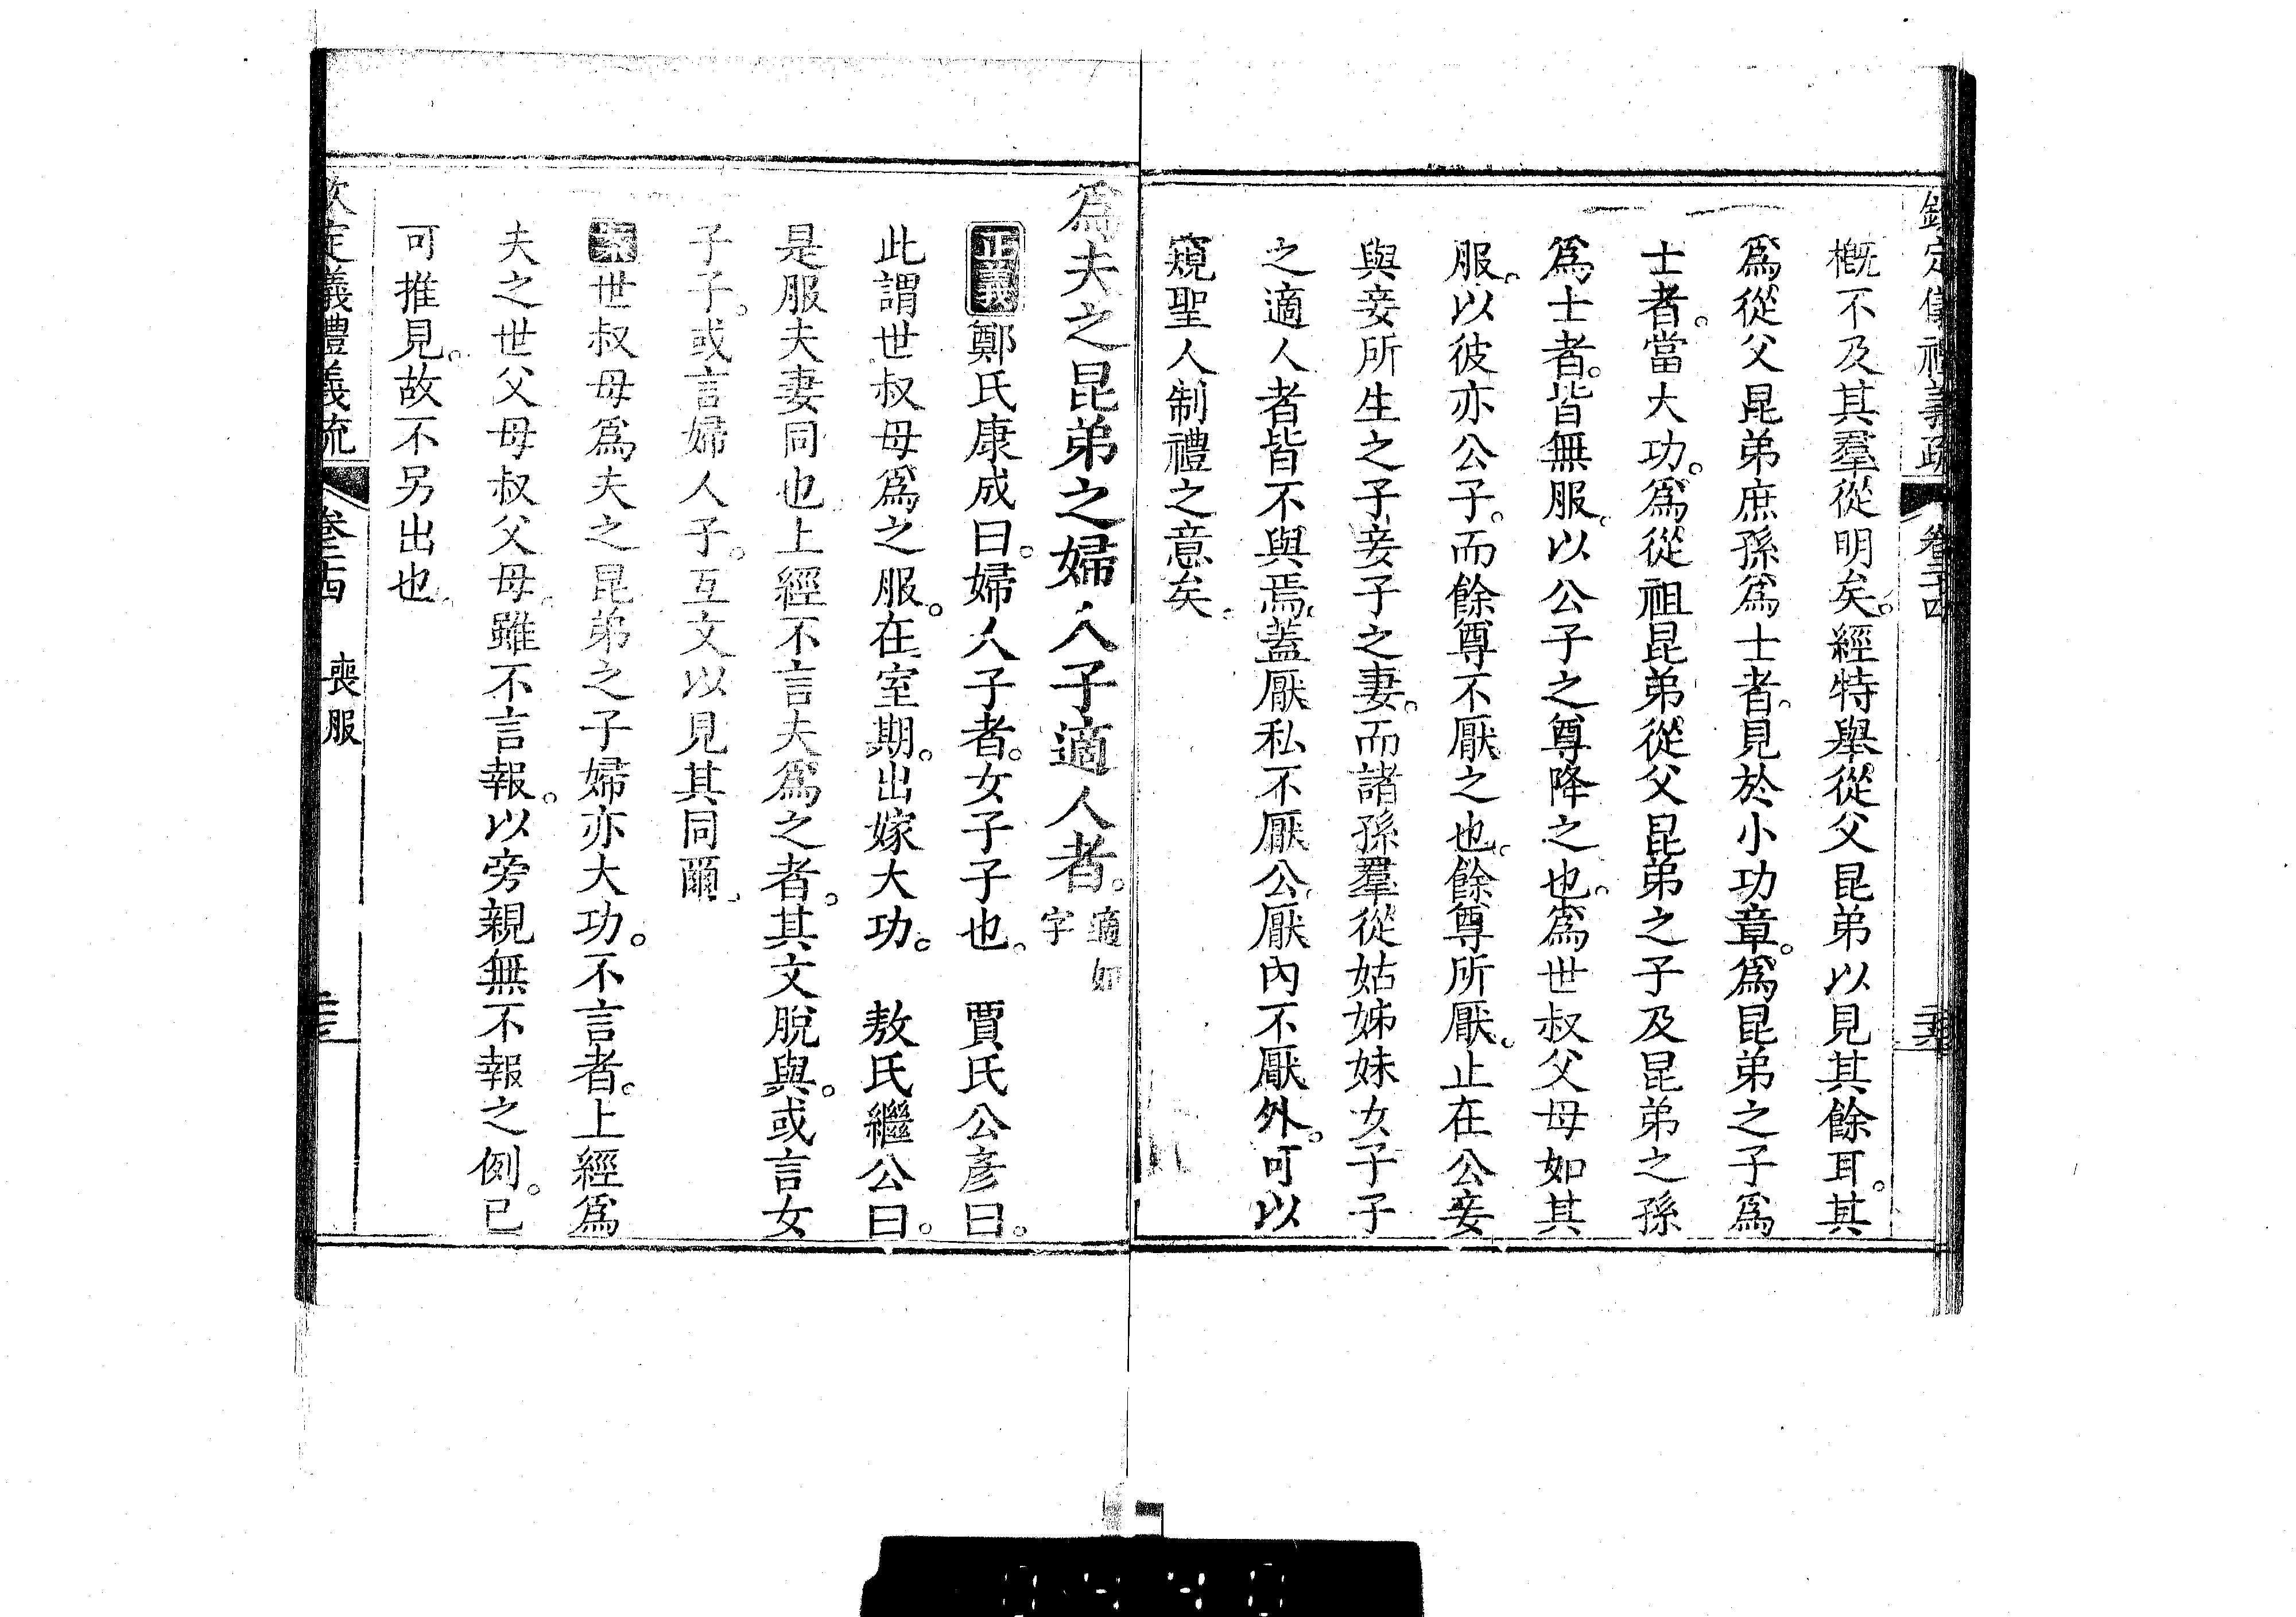 欽定儀禮義疏 卷二十四
槪不及其羣從明矣。經特舉從父昆弟以見其餘耳。其
爲從父昆弟庶孫爲士者。見於小功章。爲昆弟之子爲
士者。當大功。爲從祖昆弟從父昆弟之子及昆弟之孫
爲士者。皆無服。以公子之尊降之也。爲世叔父母如其
服。以彼亦公子。而餘尊不厭之也。餘尊所厭。止在公妾
與妾所生之子妾子之妻。而諸孫羣從姑姊妹女子子
之適人者皆不與焉。蓋厭私不厭公。厭內不厭外。可以
窺聖人制禮之意矣。
爲夫之昆弟之婦人子適人者。適如字
正義鄭氏康成曰。婦人子者。女子子也。 賈氏公彥曰。
此謂世叔母爲之服。在室期。出嫁大功。 敖氏繼公曰。
是服夫妻同也上經不言夫爲之者。其文脫與。或言女
子子。或言婦人子。互文以見其同爾。
案世叔母爲夫之昆弟之子婦亦大功。不言者。上經爲
夫之世父母叔父母。雖不言報。以旁親無不報之例。已
可推見。故不另出也。
欽定儀禮義疏 卷二十四 喪服